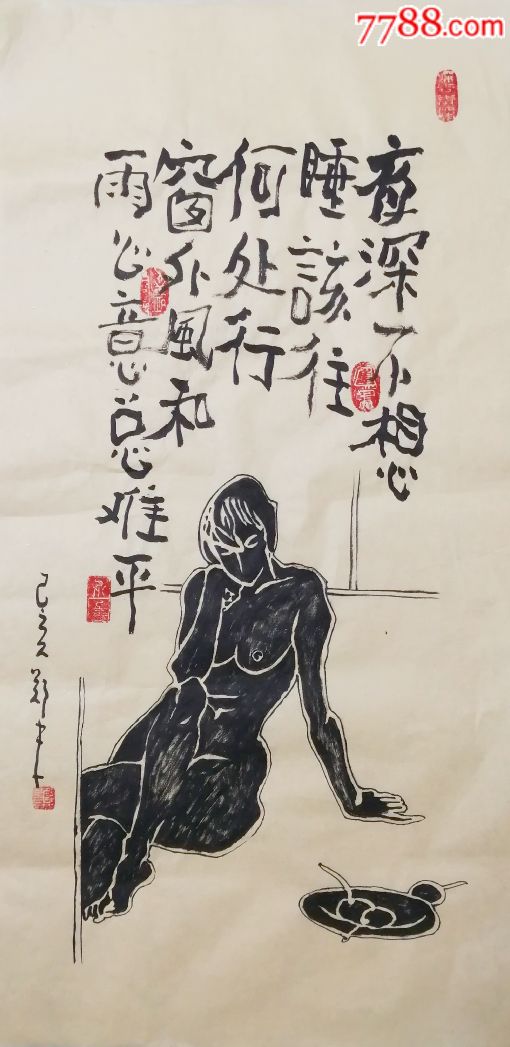 7788.com
夜深不想
睡該往
何处行
窗外風和
雨心意总難平
己亥鄭